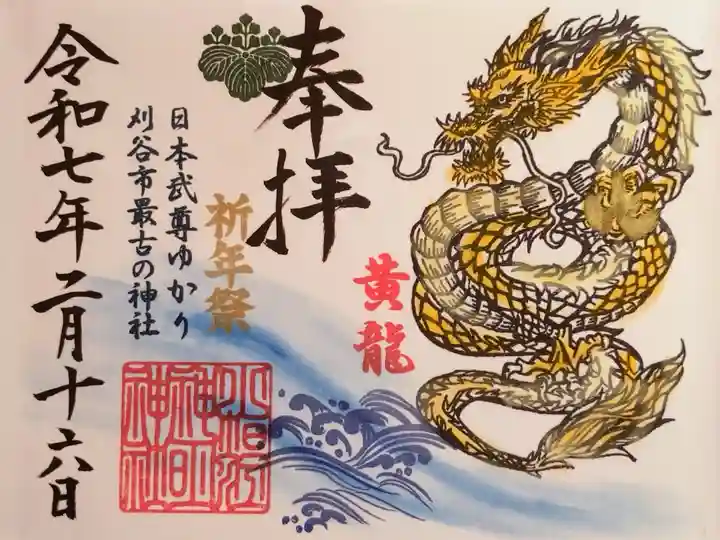 奉拝
黄龍
祈年祭
日本武尊ゆかり
刈谷市最古の神社
令和七年二月十六日